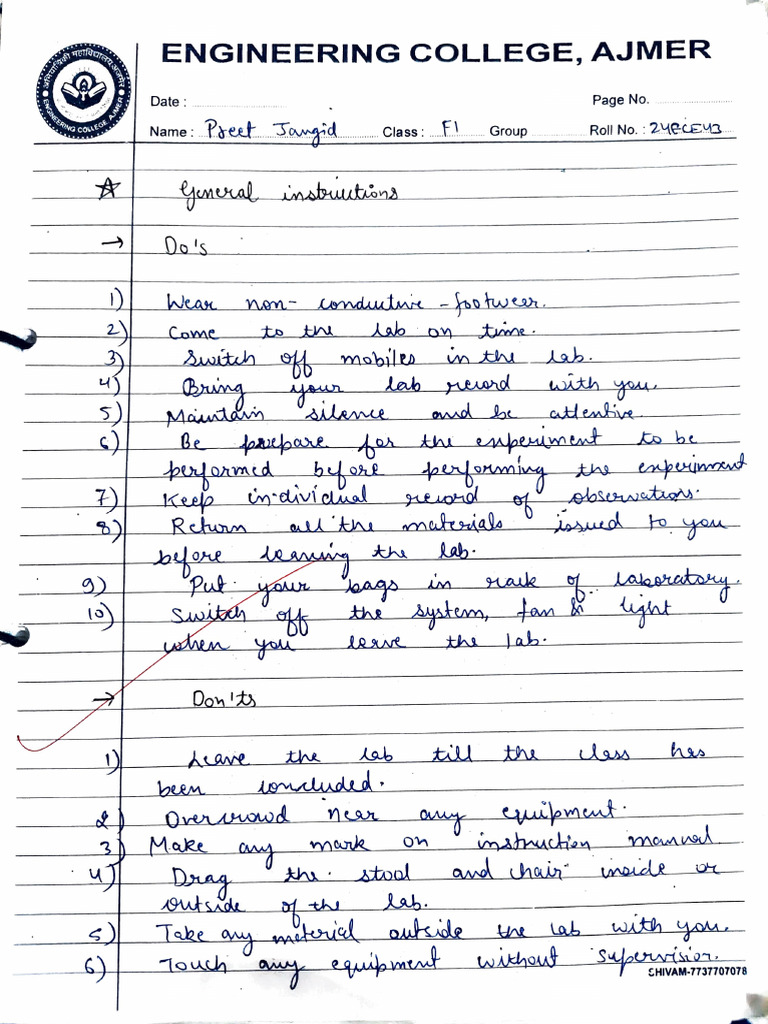 ENGINEERING COLLEGE, AJMER
अभियांत्रिकी महाविद्यालय, अजमेर
ENGINEERING COLLEGE, AJMER
Date : Page No.
Name : Preet Jangid Class : F1 Group Roll No. : 24ECE43
☆ General instructions
→ Do's
1) Wear non-conductive-footweer.
2) Come to the lab on time.
3) Switch off mobiles in the lab.
4) Bring your lab record with you.
5) Maintain silence and be attentive.
6) Be prepare for the experiment to be
performed before performing the experinment
7) Keep in-dividual record of observations.
8) Return all the materials issued to you
before leaning the lab.
9) Put your bags in rack of laboratory.
10) Switch off the system, fan & light
when you leave the lab.
→ Don'ts
1) Leave the lab till the class has
been concluded.
2) Overcrowd near any equipment.
3) Make any mark on instruction manual
4) Drag the stool and chair inside or
outside of the lab.
5) Take any material outside the lab with you.
6) Touch any equipment without supervision.
SHIVAM-7737707078